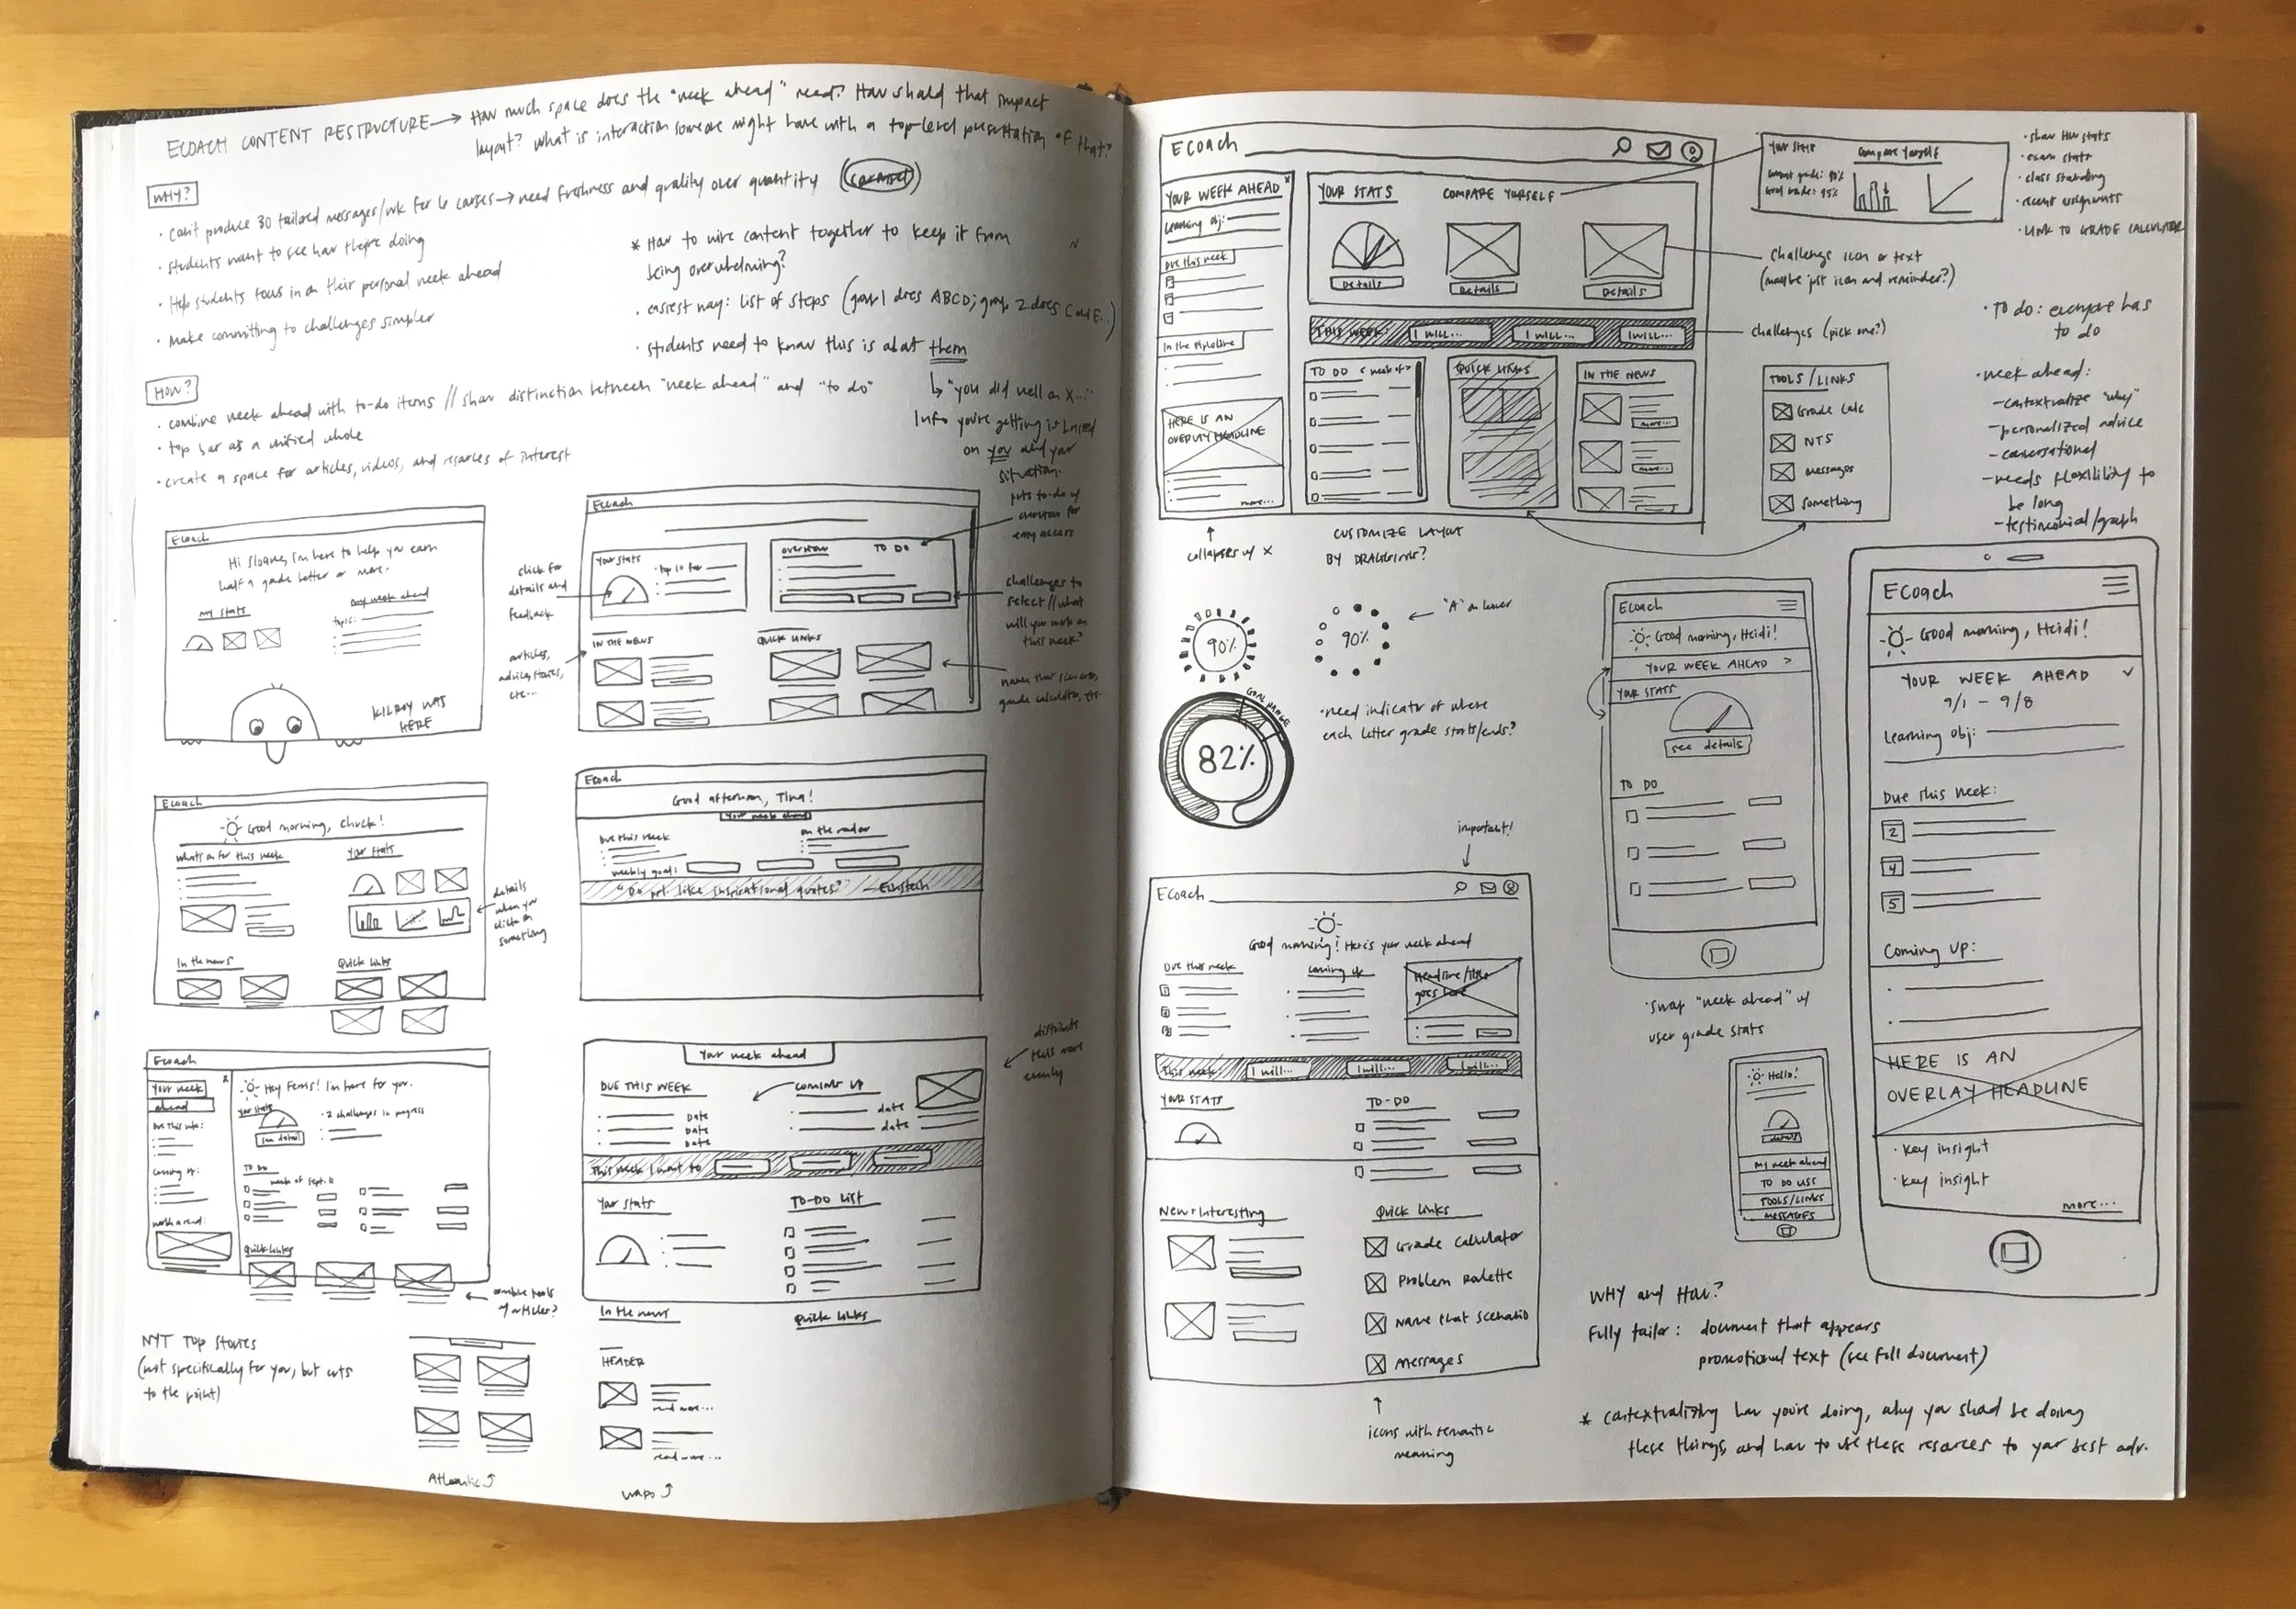 ECOACH CONTENT RESTRUCTURE → How much space does the "week ahead" need? How should that impact
layout? What is interaction someone might have with a top-level presentation of that?
WHY?
• can't produce 30 tailored messages/wk for 6 courses → need freshness and quality over quantity
• students want to see how they're doing
• Help students focus in on their personal week ahead
• Make committing to challenges simpler
* How to wire content together to keep it from
being overwhelming?
• easiest way: list of steps (group 1 does ABCD; group 2 does
• students need to know this is about them
↳ "you did well on X..."
Info you're getting is based
on you and your
situation.
HOW?
• combine week ahead with to-do items // show distinction between "week ahead" and "to do"
• top bar as a unified whole
• create a space for articles, videos, and resources of interest
ECoach
Hi Sloane, I'm here to help you earn
half a grade letter or more.
My stats
My week ahead
topic:
KILROY WAS
HERE
ECoach
Your stats
• top 10 for
Overview
TO DO
IN THE NEWS
QUICK LINKS
click for
details and
feedback
articles,
advice, stories,
etc...
puts to-do w/
overview for
easy access
challenges to
select // what
will you work on
this week?
name that scenario,
grade calculator, etc.
ECoach
Good morning, Chuck!
What's on for this week
Your Stats
In the news
Quick links
details
when you
click on
something
ECoach
Good afternoon, Tina!
Your week ahead
Due this week
on the radar
weekly goal:
"Do ppl like inspirational quotes?" —Einstein
ECoach
Your week
ahead
x
Hey Ferris! I'm here for you.
Your stats
see detail
• 2 challenges in progress
Due this wk:
Coming up:
worth a read:
TO DO
week of Sept. 11
Quick links
← combine tools
w/ articles?
Your week ahead
DUE THIS WEEK
COMING UP
Date
Date
Date
date
date
This week I want to
Your stats
TO-DO LIST
In the news
Quick links
distribute
this more
evenly
NYT Top Stories
(not specifically for you, but cuts
to the point)
Atlantic ⤴
HEADER
read more...
read more...
WaPo ⤴
ECoach
YOUR WEEK AHEAD
x
Learning obj:
Due this week
In the pipeline
HERE IS AN
OVERLAY HEADLINE
more...
YOUR STATS
COMPARE YOURSELF
Details
Details
Details
THIS WEEK:
I WILL...
I WILL...
I WILL...
TO DO < week of >
QUICK LINKS
IN THE NEWS
more...
more...
↑
collapses w/ X
CUSTOMIZE LAYOUT
BY DRAGGING?
Your stats
Compare Yourself
current grade: 90%
goal grade: 95%
• show HW stats
• exam stats
• class standing
• recent assignments
• LINK TO GRADE CALCULATOR
challenge icon or text
(maybe just icon and reminder?)
challenges (pick one?)
TOOLS / LINKS
Grade Calc
NTS
Messages
Something
• TO do: everyone has
to do
• week ahead:
- contextualize "why"
- personalized advice
- conversational
- needs flexibility to
be long
- testimonial/graph
90%
90%
← "A" on hover
GOAL RANGE
82%
• need indicator of where
each letter grade starts/ends?
important!
ECoach
Good morning! Here's your week ahead
Due this week
1
Coming up
Headline/title
goes here
This week:
I will...
I will...
I will...
YOUR STATS
TO-DO
New + Interesting
Quick links
Grade Calculator
Problem Roulette
Name that Scenario
Messages
↑
icons with semantic
meaning
ECoach
Good morning, Heidi!
YOUR WEEK AHEAD >
YOUR STATS
see details
TO DO
• swap "week ahead" w/
user grade stats
Hello!
details
My week ahead
TO DO LIST
TOOLS/LINKS
MESSAGES
ECoach
Good morning, Heidi!
YOUR WEEK AHEAD
9/1 – 9/8
Learning obj:
Due this week:
2
4
5
Coming up:
HERE IS AN
OVERLAY HEADLINE
• Key insight
• Key insight
more...
WHY and How?
Fully tailor: document that appears
promotional text (see full document)
* contextualizing how you're doing, why you should be doing
these things, and how to use these resources to your best adv.